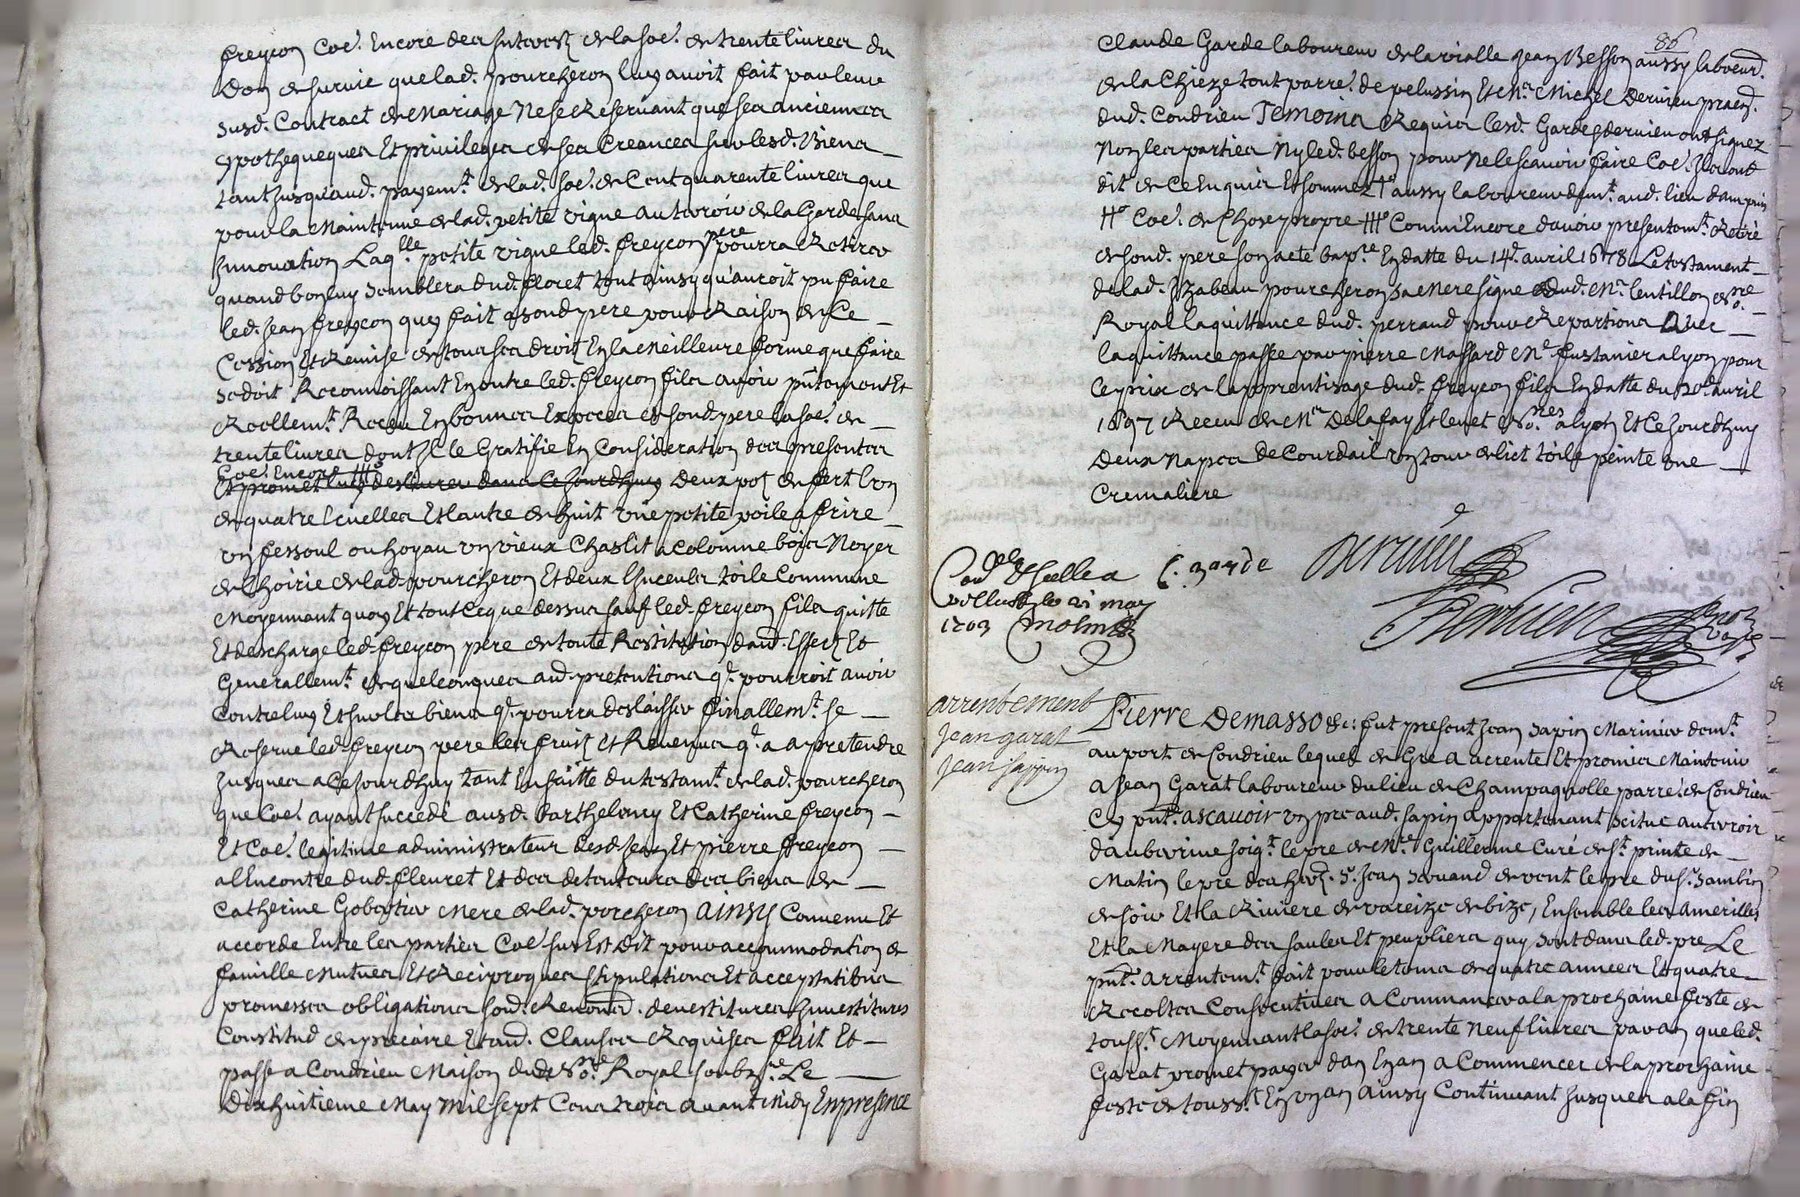 freycon Coe. Encore des Interestz de la so.e de trente livres du
Don de survie que lad. pourcheron luy avoit fait par leur
susd. Contract de Mariage Ne se Reservant que ses anciennes
ypothequeques Et privileges de ses Creances sur lesd. Biens
tant Jusqu'aud. payem.t de lad. so.e de Cent quarente livres que
pour la Maintenue de lad. petite vigne au terroir de la Garde sans
Innovation Laq.lle petite vigne led. freycon pere pourra Retirer
quand bon luy semblera dud. floret tout ainsy qu'auroit pu faire
led. Jean freycon quy fait a sond. pere pour Raison de Ce
Cession Et Remise de tous ses droitz En la Meilleure forme que faire
se doit Reconnoissant En outre led. freycon fils avoir p.ntement Et
Reellem.t Receu En bonnes Especes de sond. pere la so.e de
trente livres dont Il le Gratifie En Consideration des presentes
Coe. Encore
Et promet luy deslivrer dans Cejourdhuy Deux potz de fert l'un
de quatre Ecuelles Et l'autre de huit une petite poile a frire
un fessoul ou hoyau un vieux Chaslit a Colonne bois Noyer
de lhoirie de lad. pourcheron Et deux linceuls toile Commune
Moyennant quoy Et tout Ceque dessus sauf led. freycon fils quitte
Et descharge led. freycon pere de toute Restitution daud. Effectz Et
Generallem.t de quelconques aud. pretentions q.l pourroit avoir
Contre luy Et sur les biens q.l pourra deslaisser finallem.t se
Reserve led. freycon pere les fruitz et Revenus q.l a a pretendre
Jusques a Cejourdhuy tant En suitte du testam.t de lad. pourcheron
que Coe. ayant succedé ausd. barthelemy Et Catherine freycon
Et Coe. legitime administrateur desd. Jean Et pierre freycon
al Encontre dud. fleuret Et des detenteurs des biens de
Catherine Gobertier Mere de lad. porcheron AINSY Convenu Et
accordé Entre les parties Coe. sus Est Dit pour accommodation de
famille Mutues Et Reciproques stipulations Et acceptations
promesses obligations soud. Renonc. devestitures Investitures
Constitud. de precaire Et aud. Clauses Requises fait Et
passé a Condrieu Maison dud. No.re Royal soubz.né Le
Dixhuitieme May Mil sept Cens trois avant Midy En presence
86
Claude Garde laboureur de la vialle Jean Besson aussy laboeur.
de la Chieze tout parre. de pelussin Et M.e Michel Dervieu pra.en
dud. Condrieu Temoins Requis lesd. Garde dervieu ont signez
Non les parties Ny led. besson pour Ne le scavoir faire Coe. Ilz ont
dit de Ce Enquis Et sommez aussy laboureur dem.t aud. lieu dampuis
Coe. de Chose propre Comm Encore davoir presentem.t Retiré
de soud. pere son acte bap.re En datte du 14.e avril 1678 Le testament
de lad. Izabeau pourcheron sa Mere signe dud. M.e lentillon No.re
Royal la quittance dud. perraud pour Reparations Avec
la quittance passée par pierre Massard M.e fustanier a lyon pour
le prix de lapprentisage dud. freycon fils En datte du 20.e avril
1697 Receu de M.e Delafay No.res a lyon Et Cejourdhuy
Deux Napes De Courdail un tour de lict toile peinte une
Cremaliere
C. garde Dervieu
Con.lé Et scellé a
pellussin le 21 may
1703 Molin
arrentement
Jean garat
Jean sappin
Pierre Demasso &c: fut present Jean sapin Marinier dem.t
au port de Condrieu lequel de Gre a arrenté Et promis Maintenir
a Jean Garat laboureur du lieu de Champagnolle parre. de Condrieu
Cy pnt. ascavoir un pre aud. sapin appartenant scitué au terroir
daubervine Joig.t le pre de M.re Guillerme Curé de S.t printe de
Matin le pre des her. S.r Jean de vent le pre du S.r Sambin
de soir Et la Riviere de vareize de bize, Ensemble les amerilles
Et la Mayere des saules Et peupliers quy sont dans led. pre Le
pnt. arrentem.t fait pour le tems de quatre années Et quatre
Recoltes Consecutives a Commancer a la prochaine feste de
touss.t Moyennant la so.e de trente Neuf livres par an que led.
Garat promet payer dan En an a Commencer de la prochaine
feste de touss.t En un an ainsy Continuant Jusques a la fin